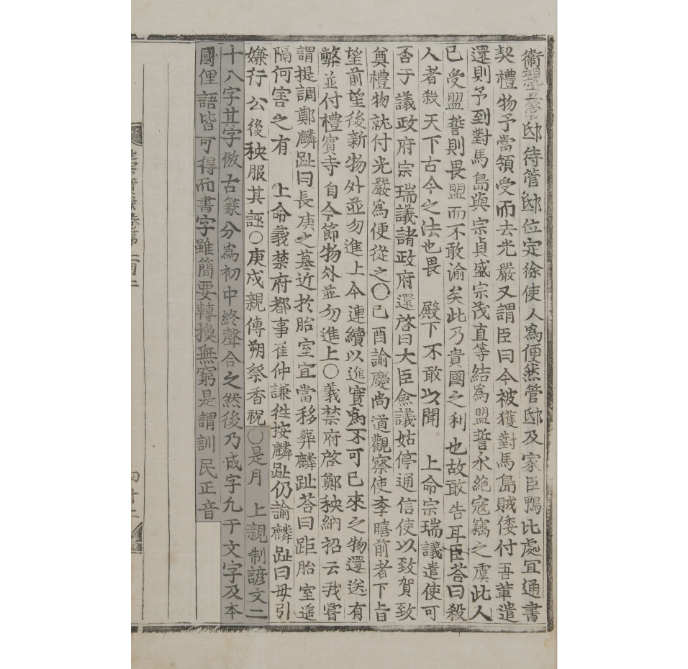 衛親上管邸待管邸位定徐使人爲便然管邸及家臣鴨比處宜通書
契禮物予當領受而去光嚴又謂臣曰今被獲對馬島賊倭付吾輩遣
還則予到對馬島與宗貞盛宗茂直等結爲盟誓永絶寇竊之虞此人
已受盟誓則畏盟而不敢渝矣此乃貴國之利也故敢告耳臣荅曰殺
人者殺天下古今之法也畏 殿下不敢以聞 上命宗瑞議遣使可
否于議政府宗瑞議諸政府還啓曰大臣僉議姑停通信使以致賀致
奠禮物就付光嚴爲便從之○己酉諭慶尙道觀察使李暿前者下旨
望前望後新物外並勿進上今連續以進實爲不可已來之物還送有
弊並付禮賓寺自今節物外並勿進上○義禁府啓鄭秧納招云我嘗
謂提調鄭麟趾曰長庚之墓近於胎室宜當移葬麟趾荅曰距胎室遥
隔何害之有 上命義禁府都事崔仲謙徃按麟趾仍諭麟趾曰毋引
嫌行公後秧服其誣○庚戌親傳朔祭香祝○是月 上親制諺文二
十八字其字倣古篆分爲初中終聲合之然後乃成字凡于文字及本
國俚語皆可得而書字雖簡要轉換無窮是謂訓民正音